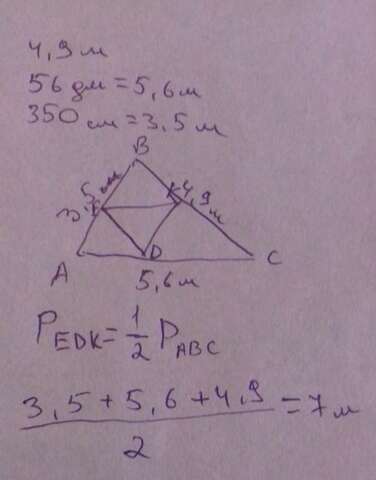 4,9 м
56 дм = 5,6 м
350 см = 3,5 м
B
K 4,9 м
A
D
C
5,6 м
P EDK = 1/2 P ABC
3,5 + 5,6 + 4,9 / 2 = 7 м